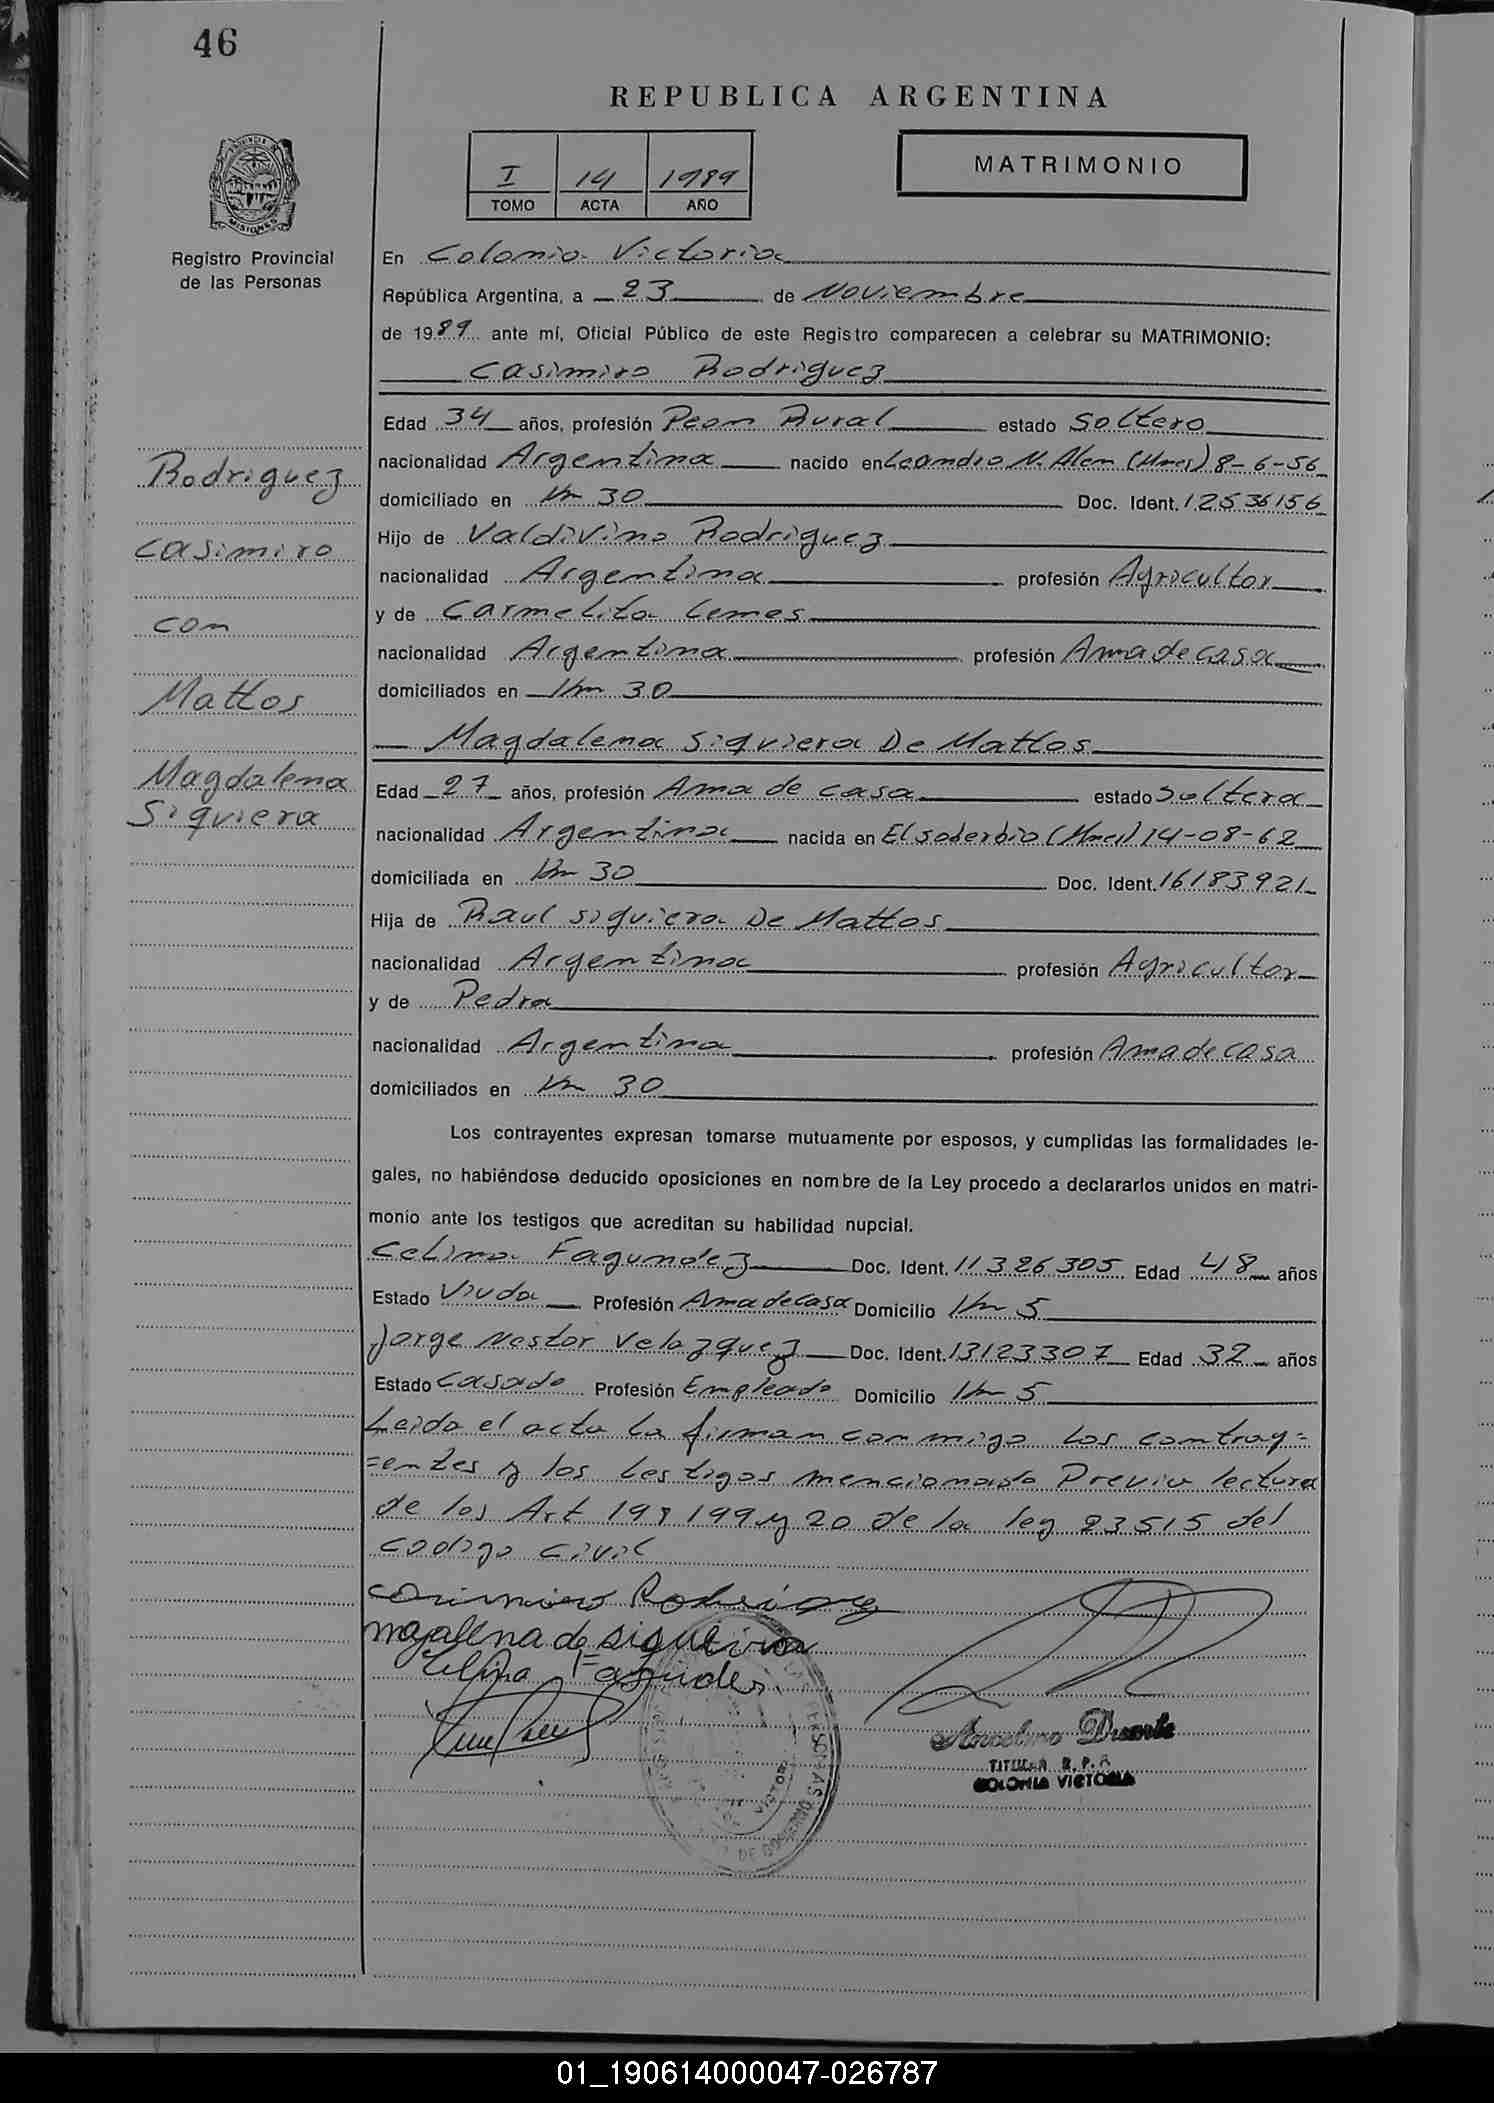 46
REPUBLICA ARGENTINA
I 14 1989
TOMO ACTA AÑO
MATRIMONIO
MISIONES
Registro Provincial
de las Personas
En Colonia Victoria
República Argentina, a 23 de Noviembre
de 1989 ante mí, Oficial Público de este Registro comparecen a celebrar su MATRIMONIO:
Casimiro Rodriguez
Edad 34 años, profesión Peon Rural estado Soltero
nacionalidad Argentina nacido en Leandro N. Alem (Mnes) 8-6-56
domiciliado en Km 30 Doc. Ident. 12536156
Hijo de Valdivino Rodriguez
nacionalidad Argentina profesión Agricultor
y de Carmelita Lemes
nacionalidad Argentina profesión Ama de casa
domiciliados en Km 30
Magdalena Siquiera De Mattos
Edad 27 años, profesión Ama de casa estado Soltera
nacionalidad Argentina nacida en El soberbio (Mnes) 14-08-62
domiciliada en Km 30 Doc. Ident. 16183921
Hija de Raul Siquiera De Mattos
nacionalidad Argentina profesión Agricultor
y de Pedra
nacionalidad Argentina profesión Ama de casa
domiciliados en Km 30
Rodriguez
Casimiro
con
Mattos
Magdalena
Siquiera
Los contrayentes expresan tomarse mutuamente por esposos, y cumplidas las formalidades le-
gales, no habiéndose deducido oposiciones en nombre de la Ley procedo a declararlos unidos en matri-
monio ante los testigos que acreditan su habilidad nupcial.
Celina Fagundez Doc. Ident. 11326305 Edad 48 años
Estado Viuda Profesión Ama de Casa Domicilio Km 5
Jorge Nestor Velazquez Doc. Ident. 13123307 Edad 32 años
Estado Casado Profesión Empleado Domicilio Km 5
Leida el acta la firman conmigo los contray=
=entes y los testigos mencionado Previa lectura
de los Art 198 199 y 20 de la ley 23515 del
codigo civil
Casimiro Rodriguez
magalena de siqueira
Celina Fagundes
Anselmo Duarte
TITULAR R.P.P.
COLONIA VICTORIA
01_190614000047-026787